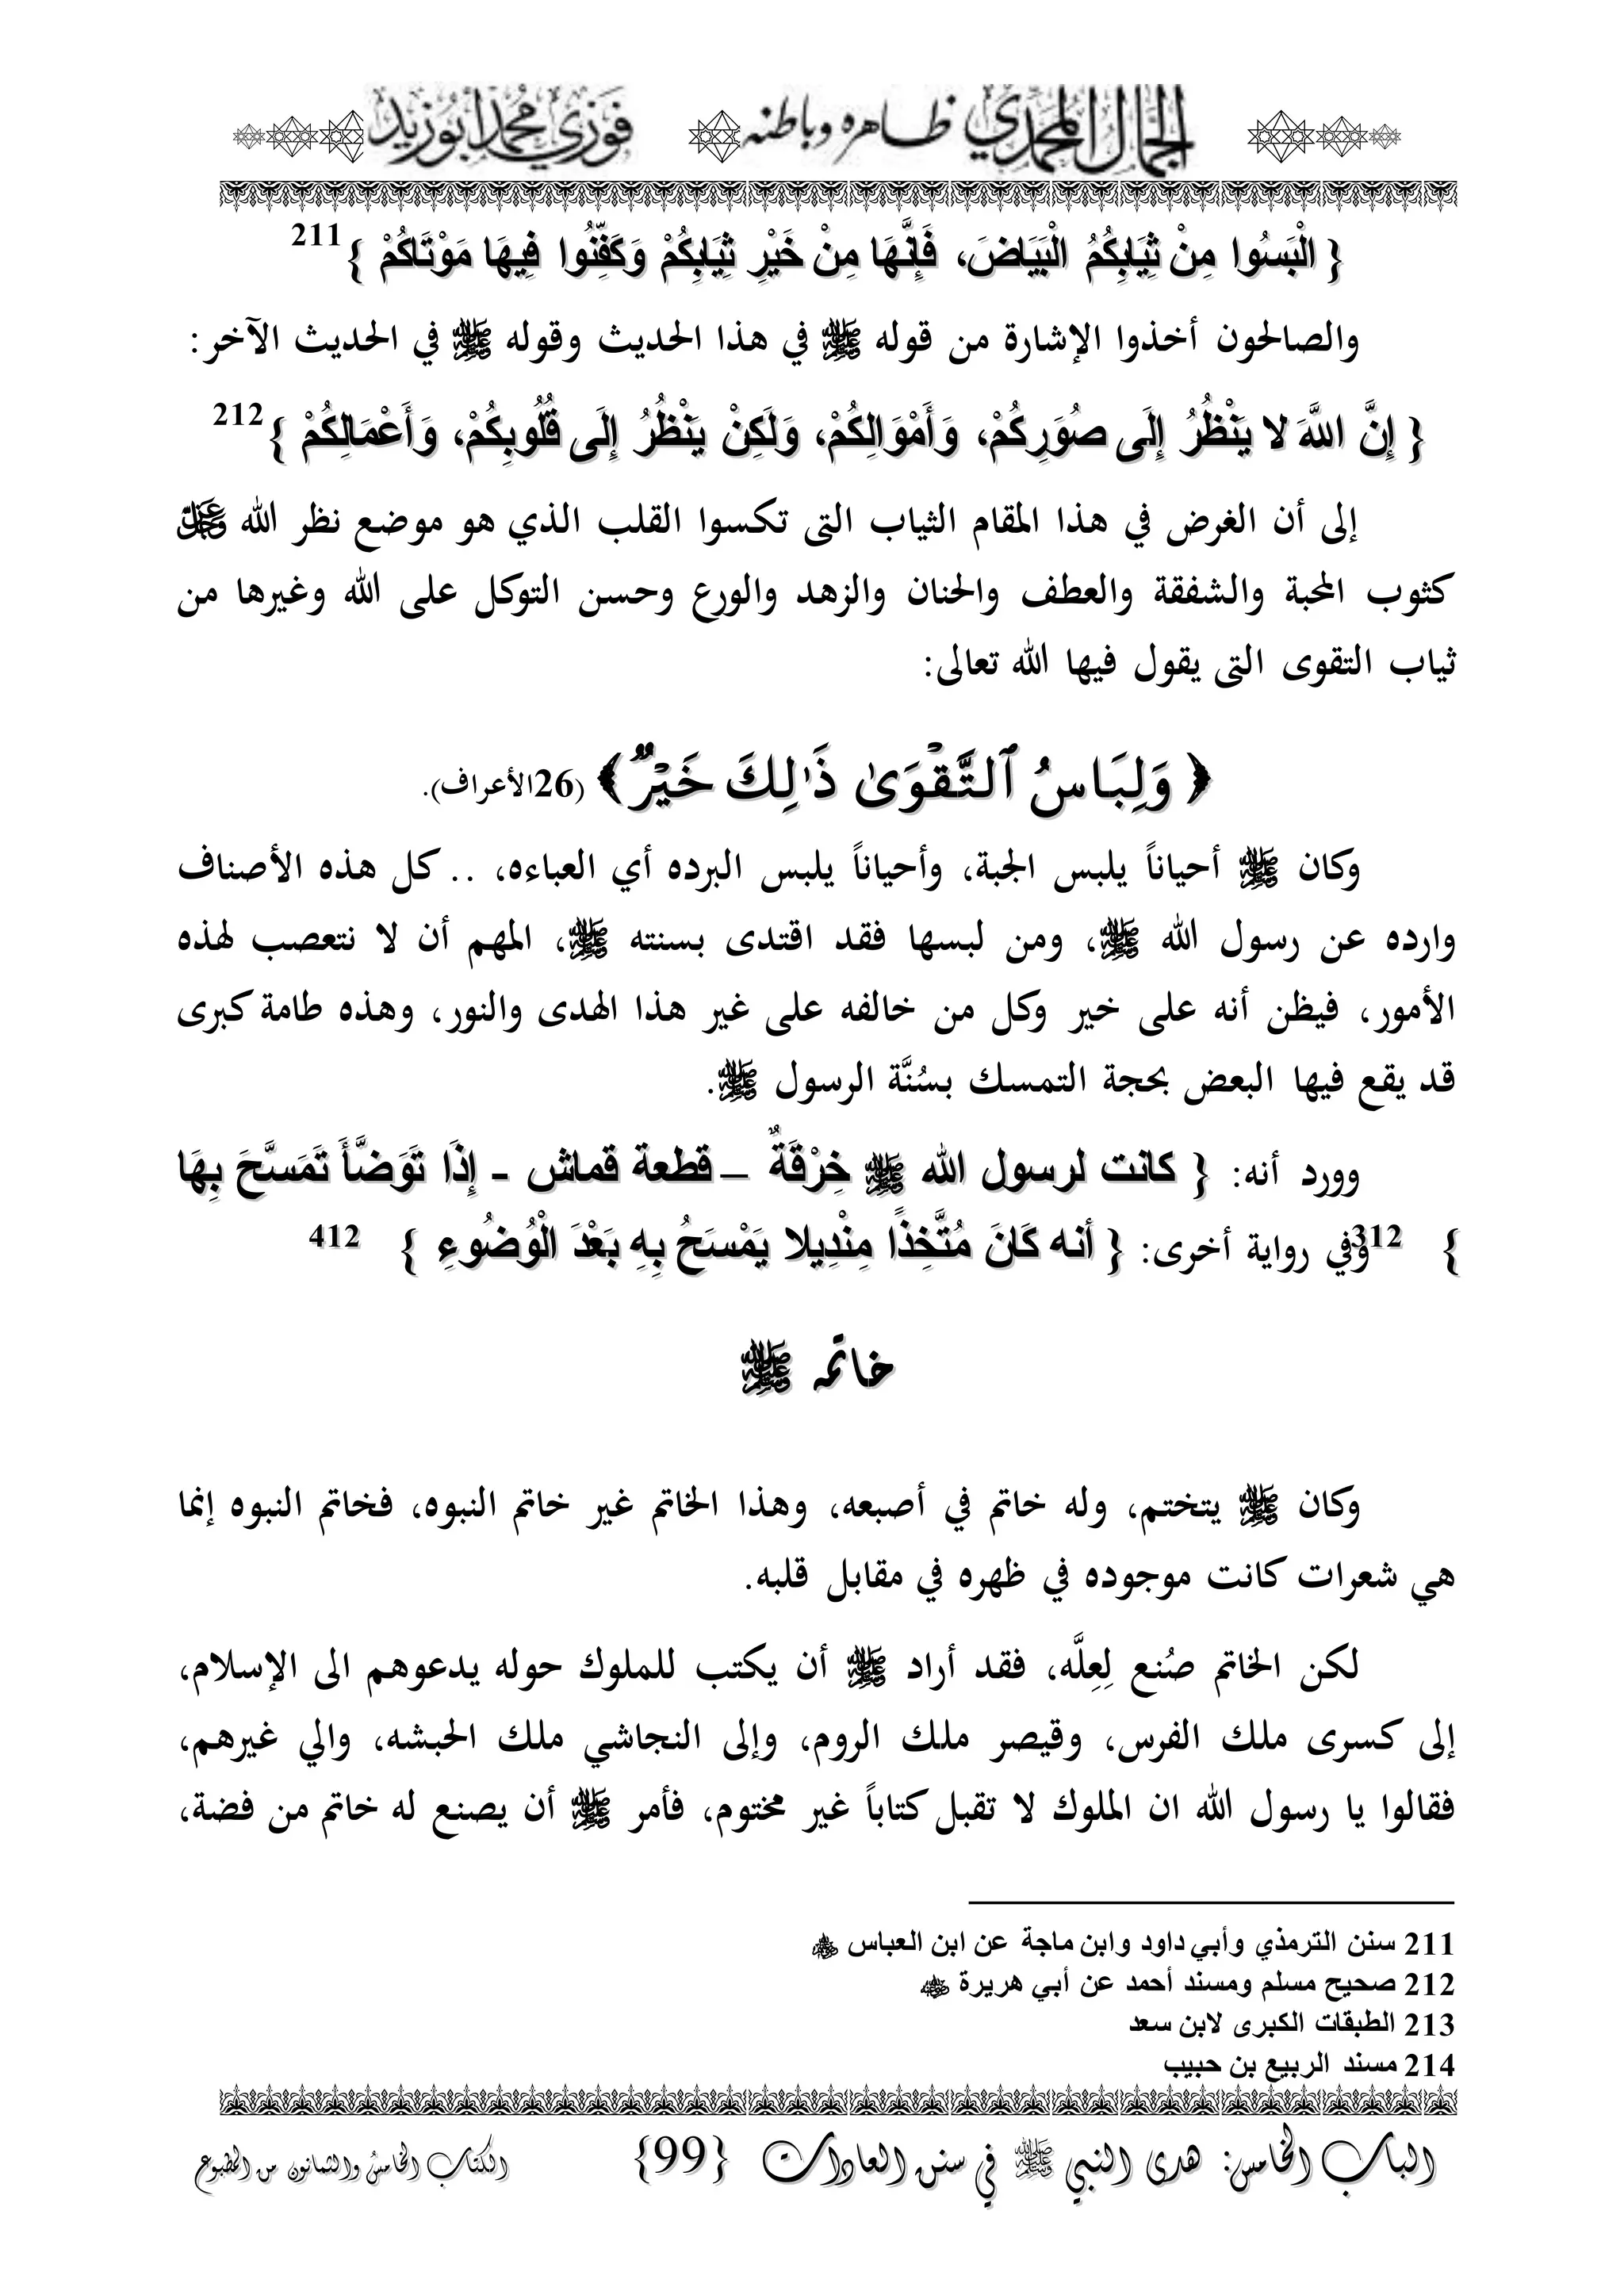 الجمال المحمدي ظاهره وباطنه فوزي محمد أبوزيد
{ الْبَسُوا مِنْ ثِيَابِكُمُ الْبَيَاضَ، فَإِنَّهَا مِنْ خَيْرِ ثِيَابِكُمْ وَكَفِّنُوا فِيهَا مَوْتَاكُمْ }211
والصالحون أخذوا الإشارة من قوله ﷺ في هذا الحديث وقوله ﷺ في الحديث الآخر:
{ إِنَّ اللَّهَ لا يَنْظُرُ إِلَى صُوَرِكُمْ، وَأَمْوَالِكُمْ، وَلَكِنْ يَنْظُرُ إِلَى قُلُوبِكُمْ، وَأَعْمَالِكُمْ }212
إلى أن الغرض في هذا المقام الثياب التى تكسوا القلب الذي هو موضع نظر الله عَزَّ وَجَلَّ
كثوب المحبة والشفقة والعطف والحنان والزهد والورع وحسن التوكل على الله وغيرها من
ثياب التقوى التى يقول فيها الله تعالى:
﴿ وَلِبَاسُ ٱلتَّقْوَىٰ ذَٰلِكَ خَيْرٌ ﴾ (26الأعراف).
وكان ﷺ أحياناً يلبس الجبة، وأحياناً يلبس البرده أي العباءه، .. كل هذه الأصناف
وارده عن رسول الله ﷺ، ومن لبسها فقد اقتدى بسنته ﷺ، المهم أن لا نتعصب لهذه
الأمور، فيظن أنه على خير وكل من خالفه على غير هذا الهدى والنور، وهذه طامة كبرى
قد يقع فيها البعض بحجة التمسك بسُنَّة الرسول ﷺ.
وورد أنه: { كانت لرسول الله ﷺ خِرْقَةٌ – قطعة قماش - إِذَا تَوَضَّأَ تَمَسَّحَ بِهَا
} 312وفي رواية أخرى: { أنه كَانَ مُتَّخِذًا مِنْدِيلا يَمْسَحُ بِهِ بَعْدَ الْوُضُوءِ } 412
خاتمه ﷺ
وكان ﷺ يتختم، وله خاتم في أصبعه، وهذا الخاتم غير خاتم النبوه، فخاتم النبوه إنما
هي شعرات كانت موجوده في ظهره في مقابل قلبه.
لكن الخاتم صُنع لِعِلَّه، فقد أراد ﷺ أن يكتب للملوك حوله يدعوهم الى الإسلام،
إلى كسرى ملك الفرس، وقيصر ملك الروم، وإلى النجاشي ملك الحبشه، والي غيرهم،
فقالوا يا رسول الله ان الملوك لا تقبل كتاباً غير مختوم، فأمر ﷺ أن يصنع له خاتم من فضة،
211 سنن الترمذي وأبي داود وابن ماجة عن ابن العباس
212 صحيح مسلم ومسند أحمد عن أبي هريرة
213 الطبقات الكبرى لابن سعد
214 مسند الربيع بن حبيب
الباب الخامس: هدى النبي ﷺ في سنن العادات {99} الكتاب الخامس والثمانون من المطبوع